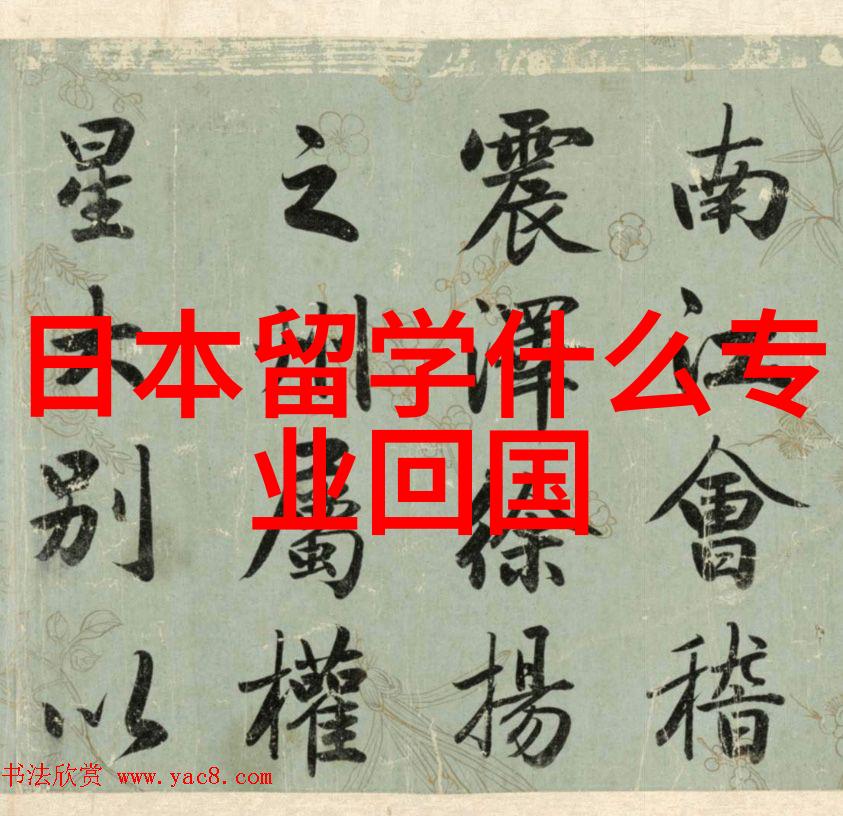 南江會稽
震澤徐揚
之州屬權
星別以
日本留学什么专
业回国
书法欣赏 www.yac8.com